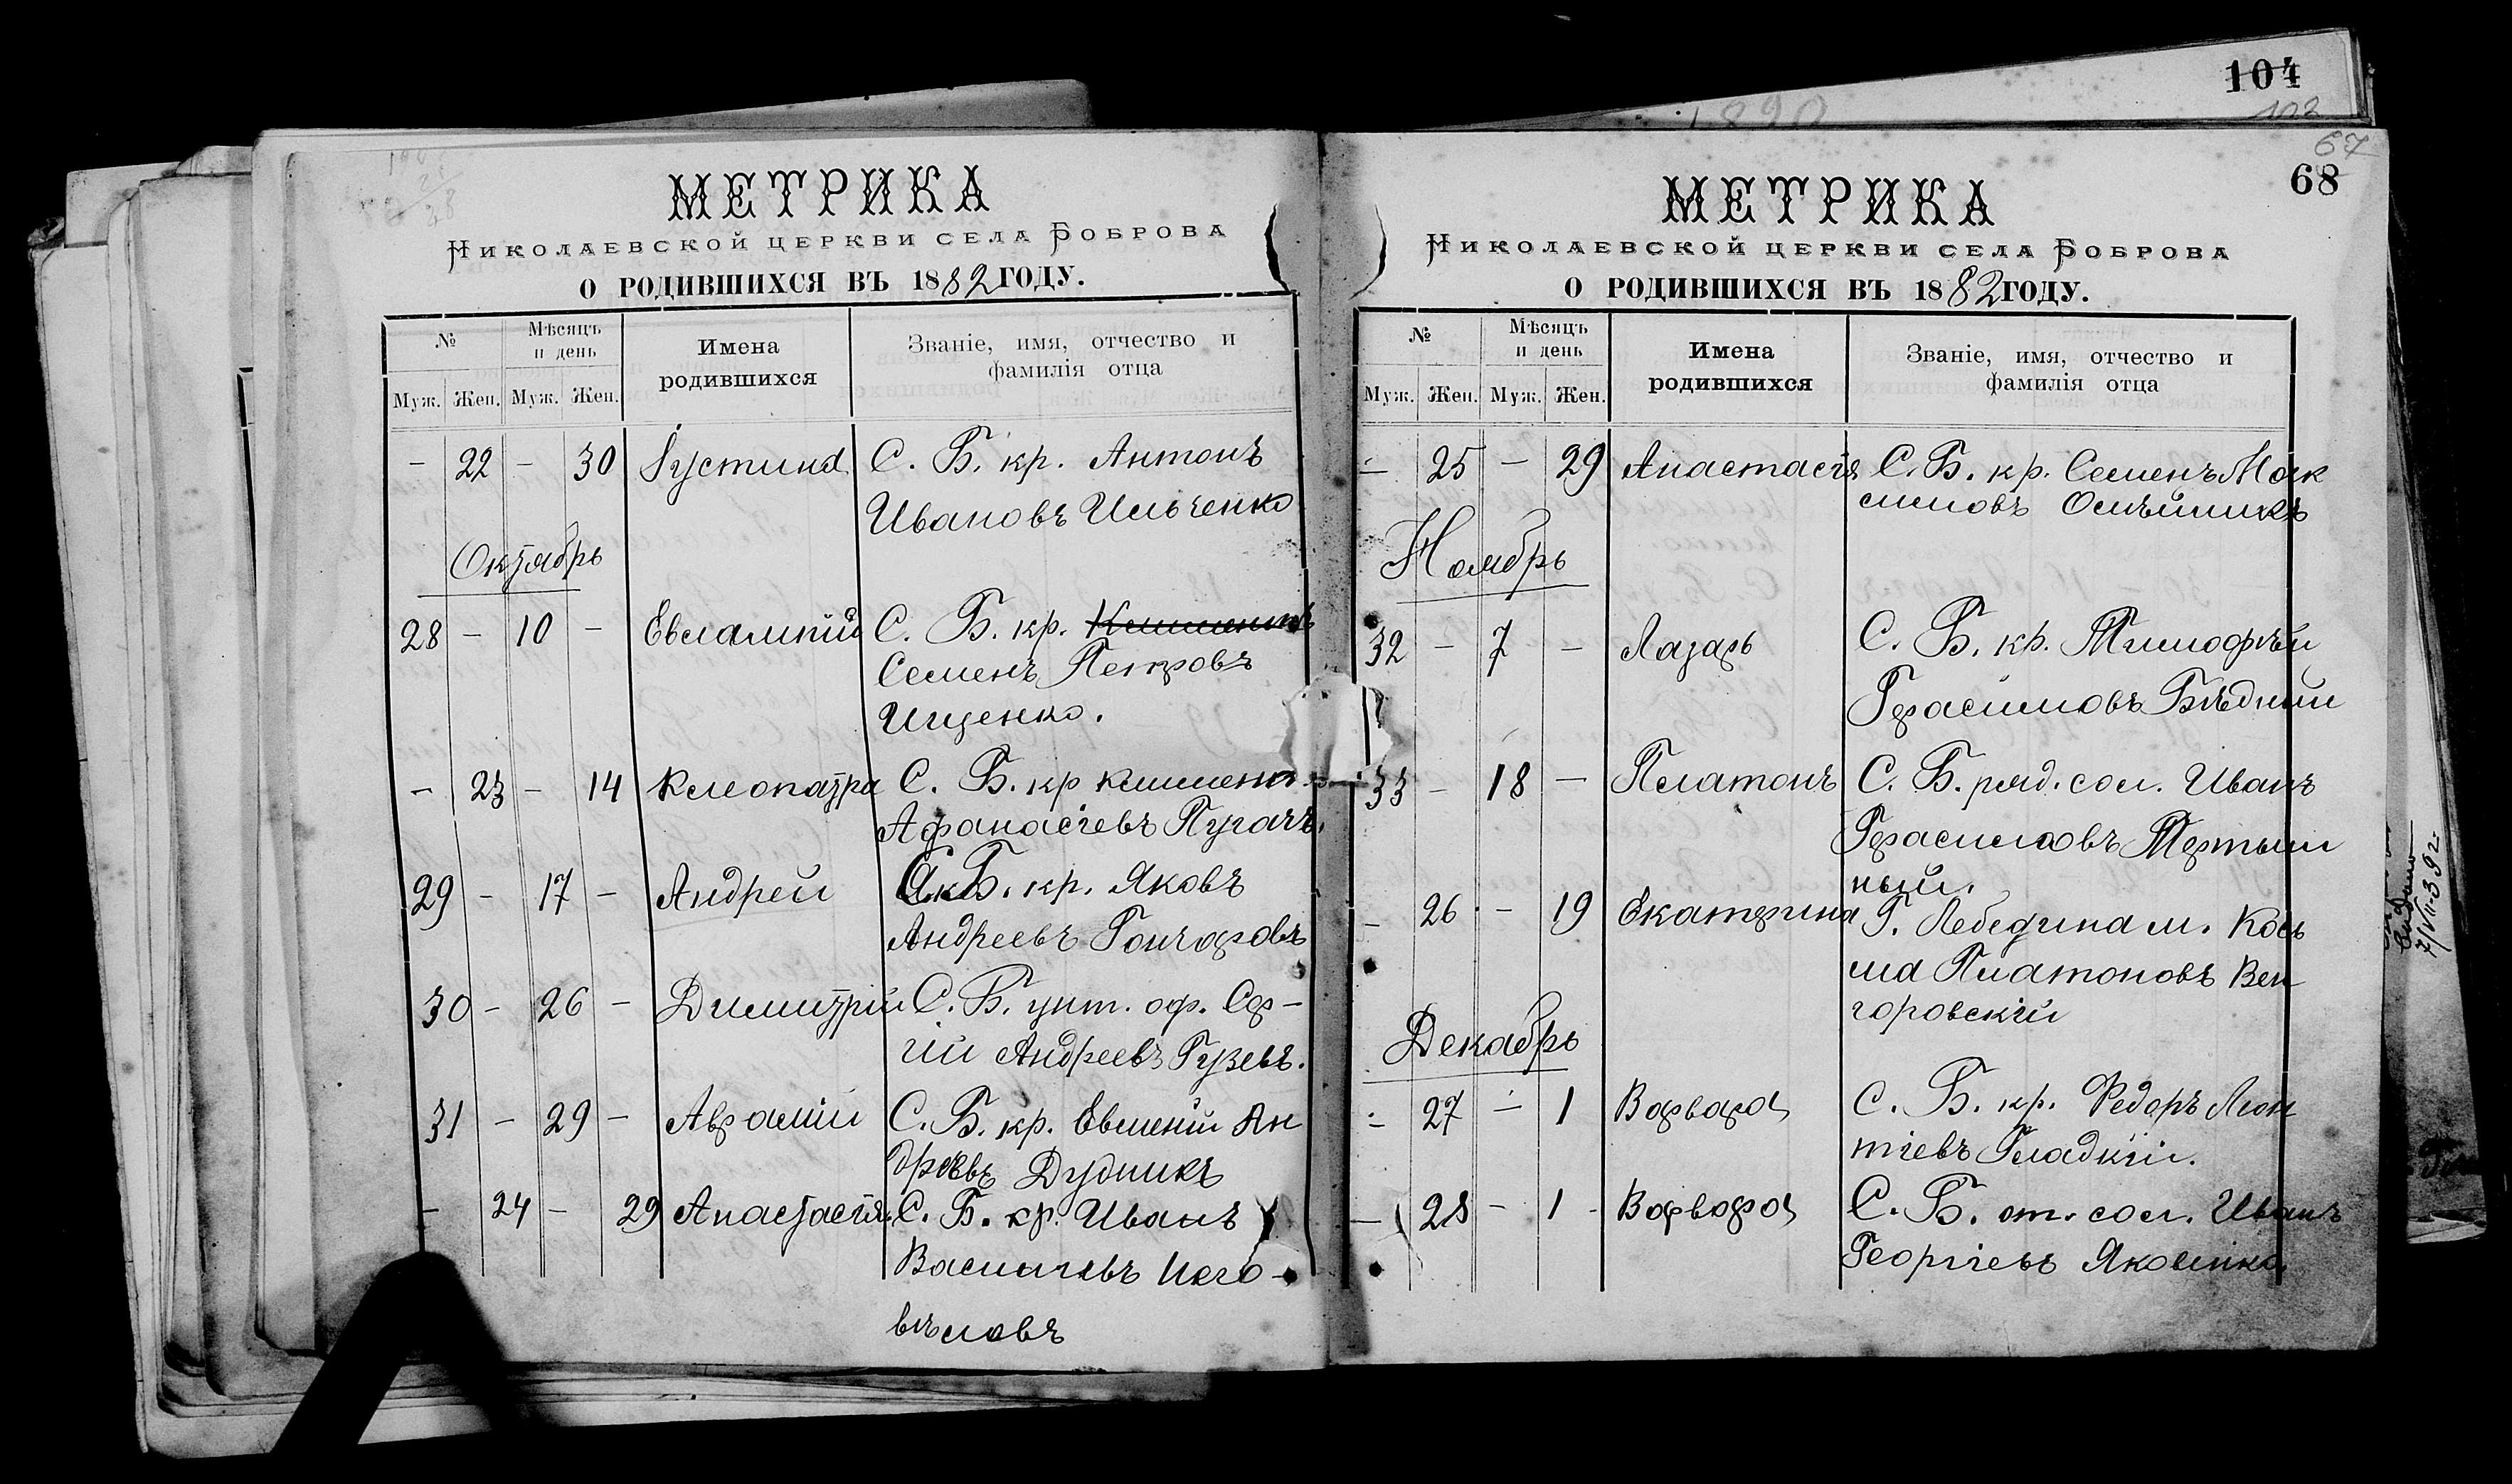 104
1890
102
67
68
МЕТРИКА
НИКОЛАЕВСКОЙ ЦЕРКВИ СЕЛА БОБРОВА
О РОДИВШИХСЯ ВЪ 1882 ГОДУ.
№ Мѣсяцъ и день Имена родившихся Званіе, имя, отчество и фамилія отца
Муж. Жен. Муж. Жен.
- 22 - 30 Іустина С. Б. кр. Антонъ
Ивановъ Ильченко
Октябрь
28 - 10 - Евлампій С. Б. кр. Климентъ
Семенъ Петровъ
Ищенко.
- 23 - 14 Клеопатра С. Б. кр Климентъ
Афанасіевъ Пугачъ.
29 - 17 - Андрей С. Б. кр. Яковъ
Андреевъ Гончаровъ
30 - 26 - Димитрій С. Б. унт. оф. Сер-
гій Андреевъ Гузевъ.
31 - 29 - Аврамій С. Б. кр. Евменій Ан
дреевъ Дудникъ
- 24 - 29 Анастасія С. Б. кр. Иванъ
Васильевъ
МЕТРИКА
НИКОЛАЕВСКОЙ ЦЕРКВИ СЕЛА БОБРОВА
О РОДИВШИХСЯ ВЪ 1882 ГОДУ.
№ Мѣсяцъ и день Имена родившихся Званіе, имя, отчество и фамилія отца
Муж. Жен. Муж. Жен.
- 25 - 29 Анастасія С. Б. кр. Семенъ Мак
симовъ
Ноябрь
32 - 7 - Лазарь С. Б. кр. Тимофѣй
Герасимовъ Бѣдный
33 - 18 - Платонъ С. Б. ряд. сол. Иванъ
Герасимовъ Мертыш
ный.
- 26 - 19 Екатерина Г. Лебедина м. Кось
ма Платоновъ Вен
горовскій
Декабрь
- 27 - 1 Варвара С. Б. кр. Федоръ Леон
тіевъ Гладкій.
- 28 - 1 - Варвара С. Б. от. сол. Иванъ
Георгіевъ Яковенко